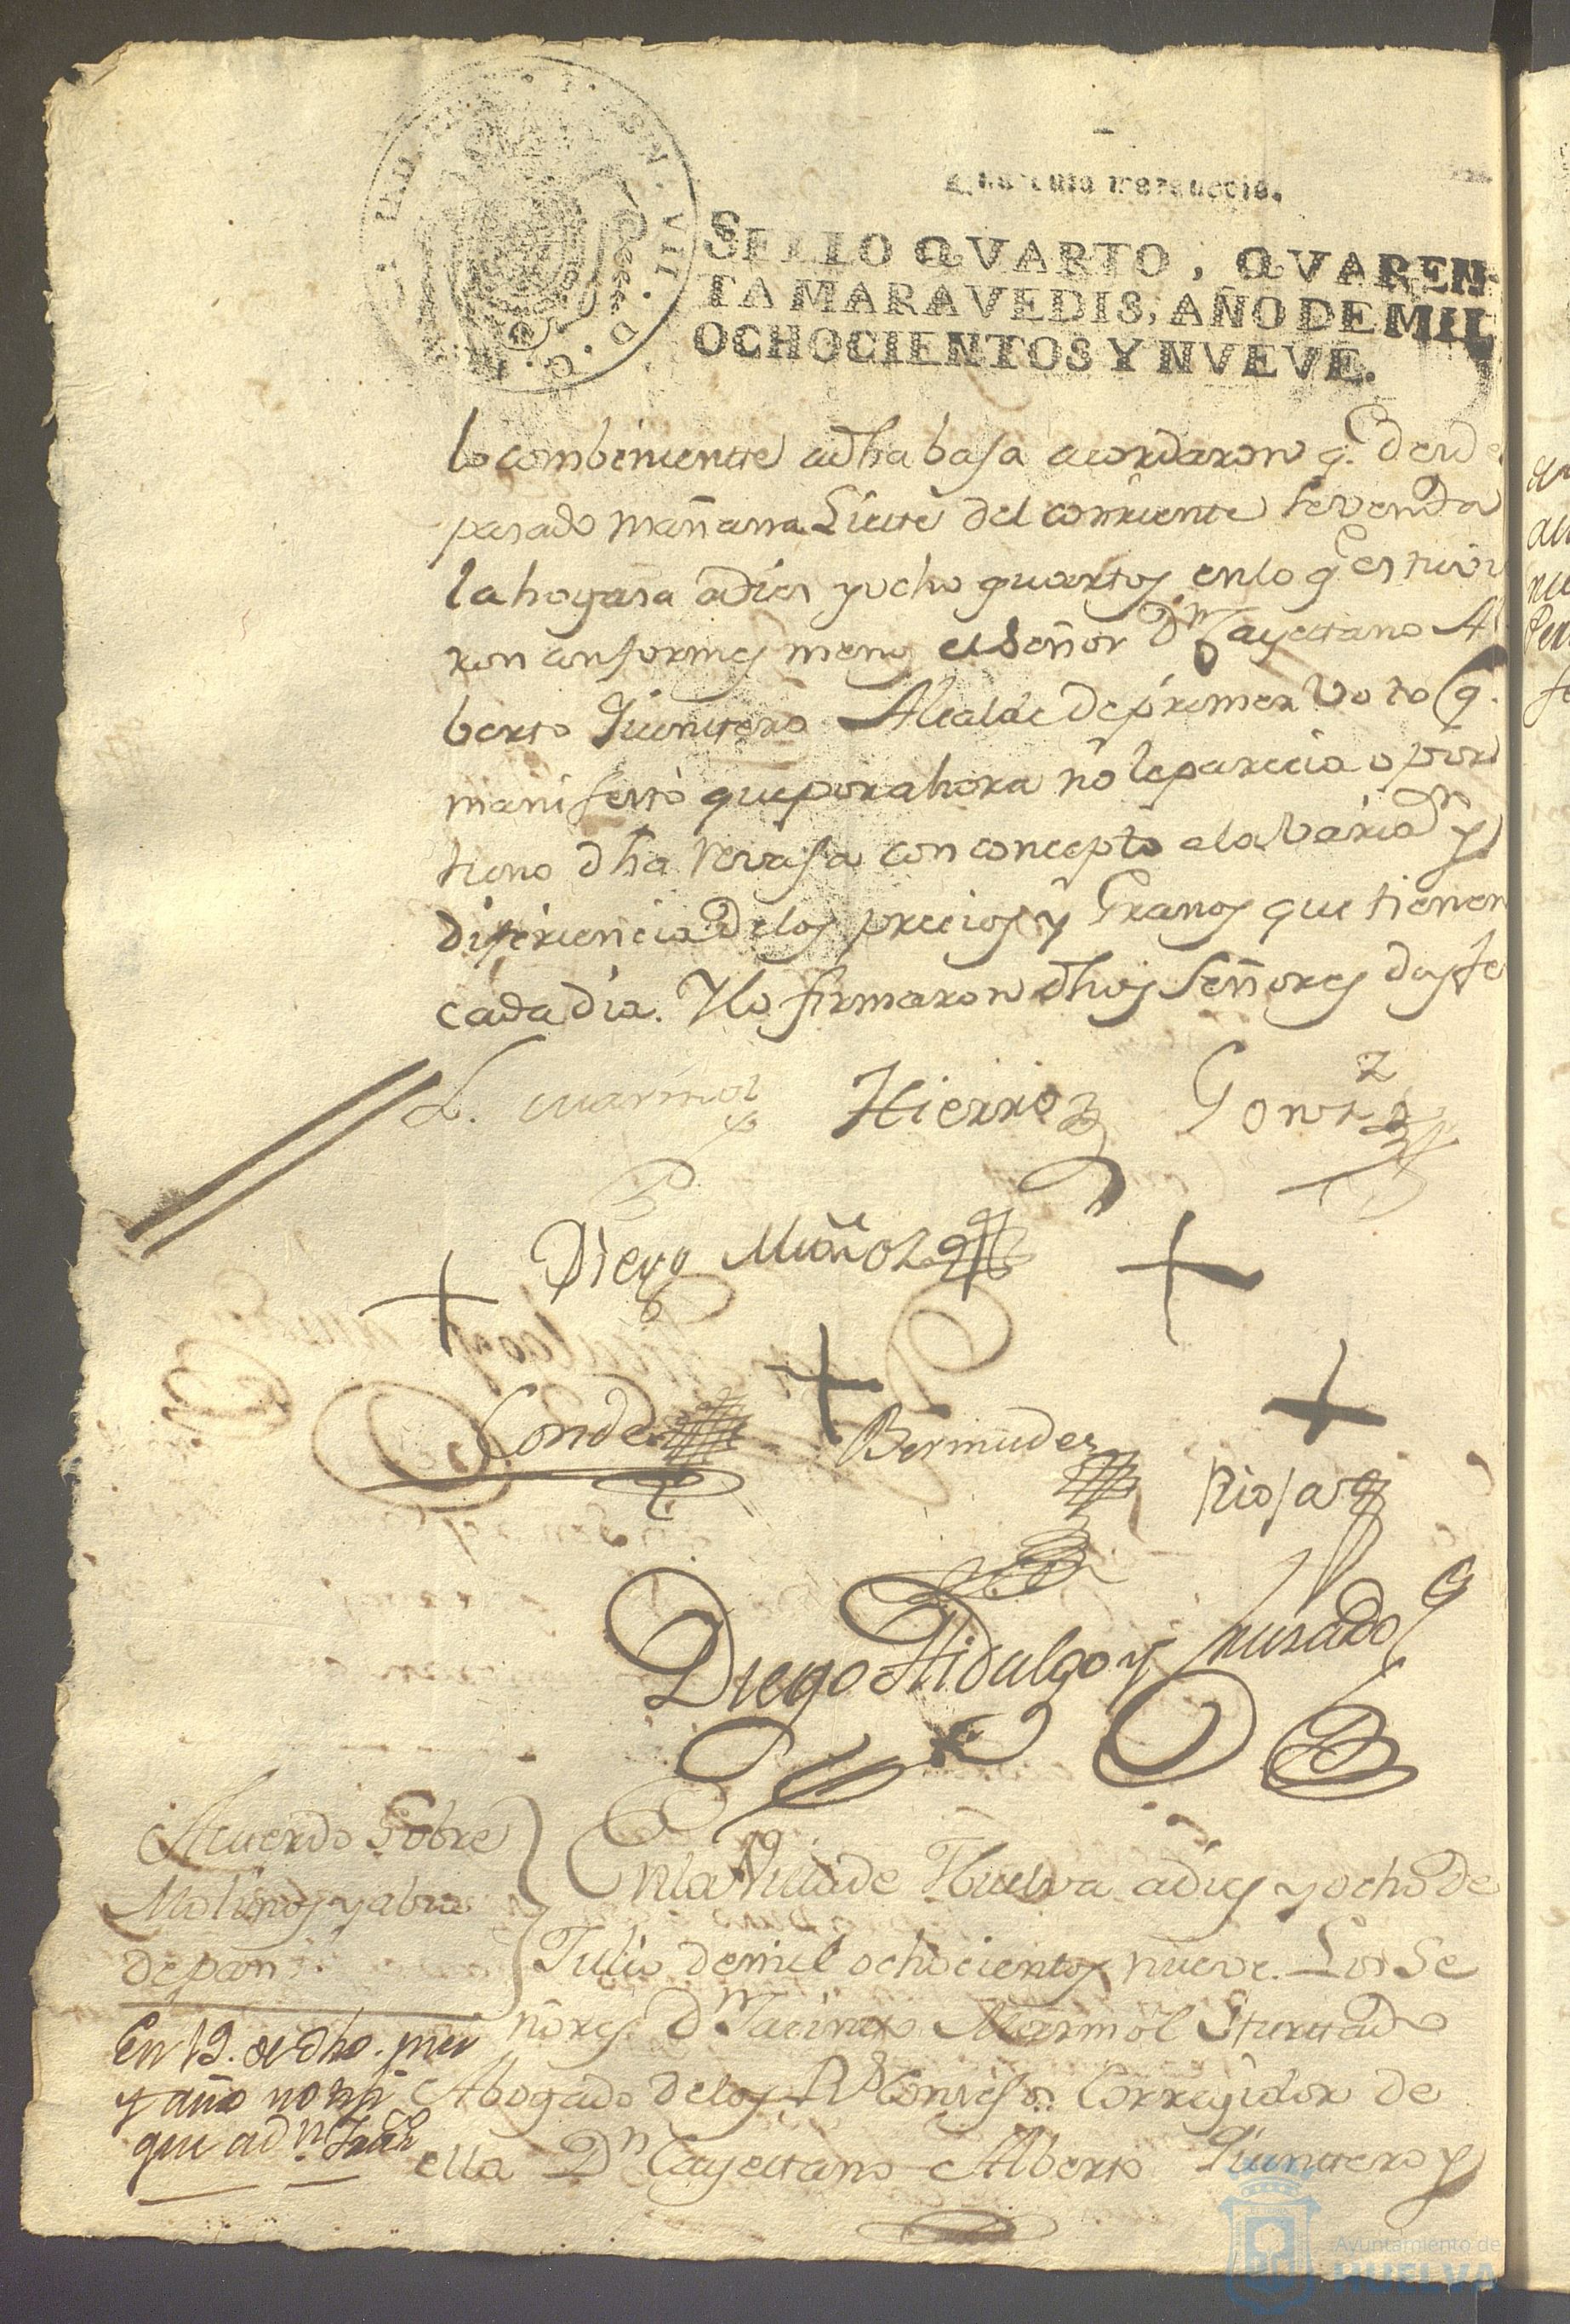 Quarenta maravedis.
SELLO QVARTO, QVAREN-
TA MARAVEDIS, AÑO DE MIL
OCHOCIENTOS Y NVEVE.
lo combeniente a dha baja acordaron q.e desde
pasado mañana Siete del corriente se venda
la hogasa a dies y ocho quartos en lo q.e estuvie
ron conformes menos el Señor Dn Cayetano Al
berto Quintero Alcalde de primer Voto q.
manifestó que por ahora no le parecia opor
tuno dha revaja con concepto a la variac.n y
diferiencia de los precios y Granos que tienen
cada dia. Y lo firmaron dhos Señores doy fe
L. Marmol Hierro Gonz
Diego Muñoz
Conde Bermudez Rioja
Diego Hidalgo y Jurado
Acuerdo Sobre
Molinos y abio
de pan
En la Villa de Huelva a dies y ocho de
Julio de mil ochocientos nueve. Los Se
ñores Dn Jacinto Marmol Hurtado
Abogado de los Rs Consejos Corregidor de
ella Dn Cayetano Alberto Quintero y
En 19. de dho. mes
y año notifi
que a dn.
Ayuntamiento de
HUELVA